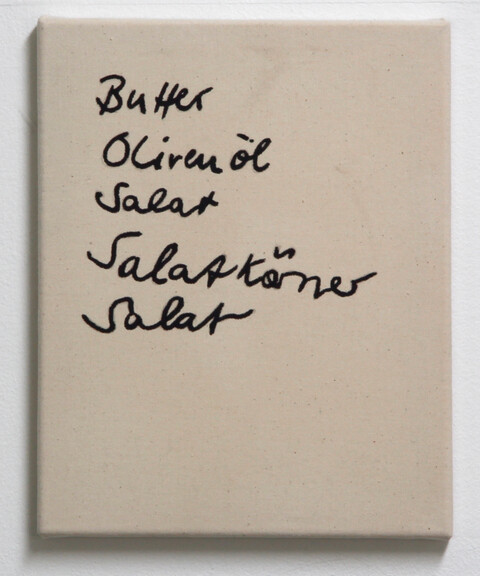 Butter
Olivenöl
Salat
Salatkörner
Salat